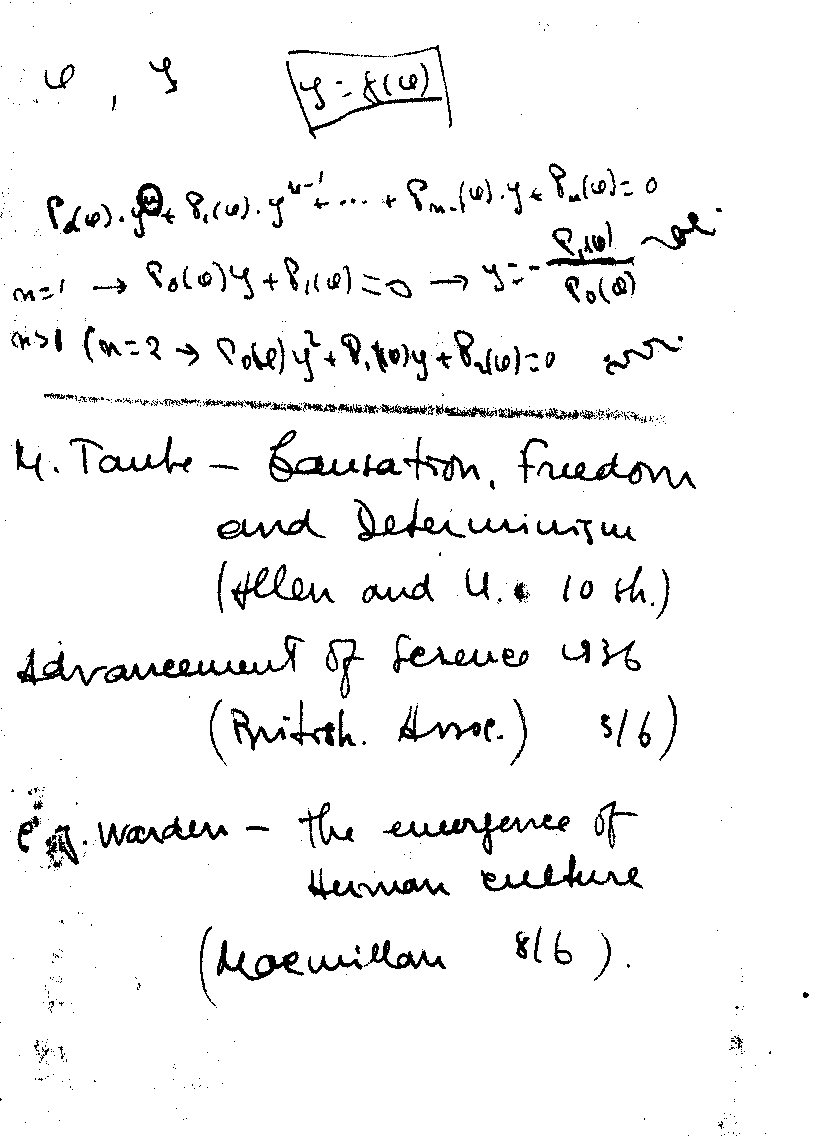 φ , y   y = f(φ)
P₀(φ)·yⁿ + P₁(φ)·yⁿ⁻¹ + ... + Pₙ₋₁(φ)·y + Pₙ(φ) = 0
n=1 → P₀(φ)y + P₁(φ) = 0 → y = - P₁(φ)/P₀(φ)
n>1 (n=2 → P₀(φ)y² + P₁(φ)y + P₂(φ) = 0
M. Taube – Causation, Freedom
and Determinism
(Allen and U. 10 sh.)
Advancement of Science 1936
(British. Assoc.) 3/6)
Warden – The emergence of
Human culture
(Macmillan 8/6).